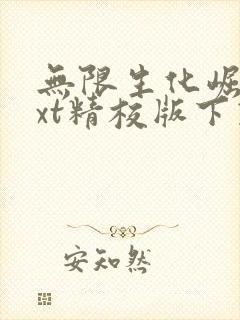 無限生化崛
xt精校版下
安知然